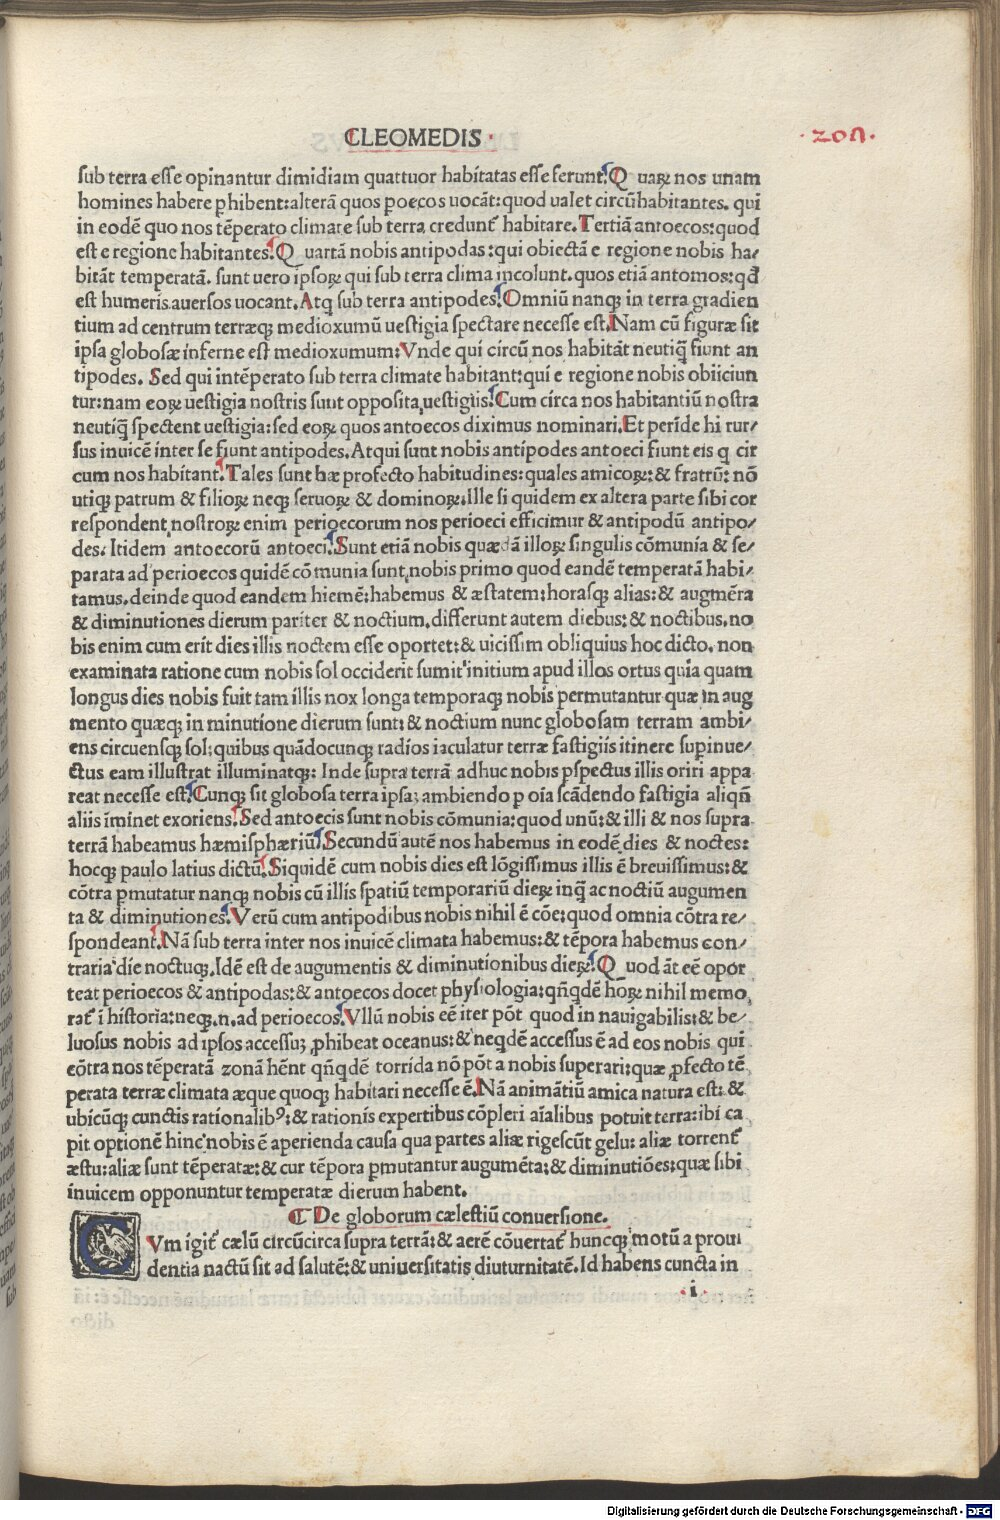 CLEOMEDIS
·201·
sub terra esse opinantur dimidiam quattuor habitatas esse ferunt. Quarꝫ nos unam
homines habere phibent:alterā quos poecos uocāt:quod ualet circūhabitantes. qui
in eodē quo nos tēperato climate sub terra credunt̃ habitare. Tertiā antoecos:quod
est e regione habitantes. Quartā nobis antipodas:qui obiectā e regione nobis ha/
bitāt temperatā. sunt uero ipsoꝝ qui sub terra clima incolunt. quos etiā antomos:qđ
est humeris auersos uocant. Atqꝫ sub terra antipodes. Omniū nanqꝫ in terra gradien
tium ad centrum terræqꝫ medioxumū uestigia spectare necesse est. Nam cū figuræ sit
ipsa globosæ inferne est medioxumum: Vnde qui circū nos habitāt neutiq̃ fiunt an
tipodes. Sed qui intēperato sub terra climate habitant:qui e regione nobis obiiciun
tur:nam eoꝝ uestigia nostris sunt opposita uestigiis. Cum circa nos habitantiū nostra
neutiq̃ spectent uestigia:sed eoꝝ quos antoecos diximus nominari. Et peride hi rur/
sus inuicē inter se fiunt antipodes. Atqui sunt nobis antipodes antoeci fiunt eis q cir
cum nos habitant. Tales sunt hæ profecto habitudines:quales amicoꝝ:& fratrū: nō
utiqꝫ patrum & filioꝝ neqꝫ seruoꝝ & dominoꝝ. Ille si quidem ex altera parte sibi cor
respondent nostroꝝ enim perioecorum nos perioeci efficimur & antipodū antipo/
des. Itidem antoecorū antoeci. Sunt etiā nobis quædā illoꝝ singulis cōmunia & se/
parata ad perioecos quidē cōmunia sunt nobis primo quod eandē temperatā habi/
tamus. deinde quod eandem hiemē:habemus & æstatem:horasqꝫ alias:& augmēta
& diminutiones dierum pariter & noctium. differunt autem diebus:& noctibus. no
bis enim cum erit dies illis noctem esse oportet:& uicissim obliquius hoc dicto. non
examinata ratione cum nobis sol occiderit sumit initium apud illos ortus quia quam
longus dies nobis fuit tam illis nox longa temporaqꝫ nobis permutantur quæ in aug
mento quæqꝫ in minutione dierum sunt:& noctium nunc globosam terram ambi/
ens circuensqꝫ sol:quibus quādocunqꝫ radios iaculatur terræ fastigiis itinere supinue/
ctus eam illustrat illuminatqꝫ: Inde supra terrā adhuc nobis pspectus illis oriri appa
reat necesse est. Cunqꝫ sit globosa terra ipsa; ambiendo p oīa scādendo fastigia aliqñ
aliis īminet exoriens. Sed antoecis sunt nobis cōmunia:quod unū:& illi & nos supra
terrā habeamus hæmisphæriū. Secundū autē nos habemus in eodē dies & noctes:
hocqꝫ paulo latius dictū. Siquidē cum nobis dies est lōgissimus illis ē breuissimus:&
cōtra pmutatur nanqꝫ nobis cū illis spatiū temporariū dieꝝ inq̃ ac noctiū augumen
ta & diminutiones. Verū cum antipodibus nobis nihil ē cōe:quod omnia cōtra re/
spondeant. Nā sub terra inter nos inuicē climata habemus:& tēpora habemus con/
traria die noctuqꝫ. Idē est de augumentis & diminutionibus dieꝝ. Quod āt eē opor
teat perioecos & antipodas:& antoecos docet physiologia:qñqdē hoꝝ nihil memo
rat̃ ī historia:neqꝫ.n.ad perioecos. Vllū nobis eē iter pōt quod in nauigabilis:& be/
luosus nobis ad ipsos accessuꝫ phibeat oceanus:& neqdē accessus ē ad eos nobis qui
cōtra nos tēperatā zonā hēnt qñqdē torrida nō pōt a nobis superari:quæ pfecto tē
perata terræ climata æque quoqꝫ habitari necesse ē. Nā animātiū amica natura est:&
ubicūqꝫ cunctis rationalibꝰ:& rationis expertibus cōpleri aīalibus potuit terra:ibi ca
pit optionē hinc nobis ē aperienda causa qua partes aliæ rigescūt gelu: aliæ torrent̃
æstu:aliæ sunt tēperatæ:& cur tēpora pmutantur augumēta:& diminutiōes:quæ sibi
inuicem opponuntur temperatæ dierum habent.
De globorum cælestiū conuersione.
CVm igit̃ cælū circūcirca supra terrā:& aerē cōuertat̃ huncqꝫ motū a proui
dentia nactū sit ad salutē:& uniuersitatis diuturnitatē. Id habens cuncta in
.i.
Digitalisierung gefördert durch die Deutsche Forschungsgemeinschaft - DFG